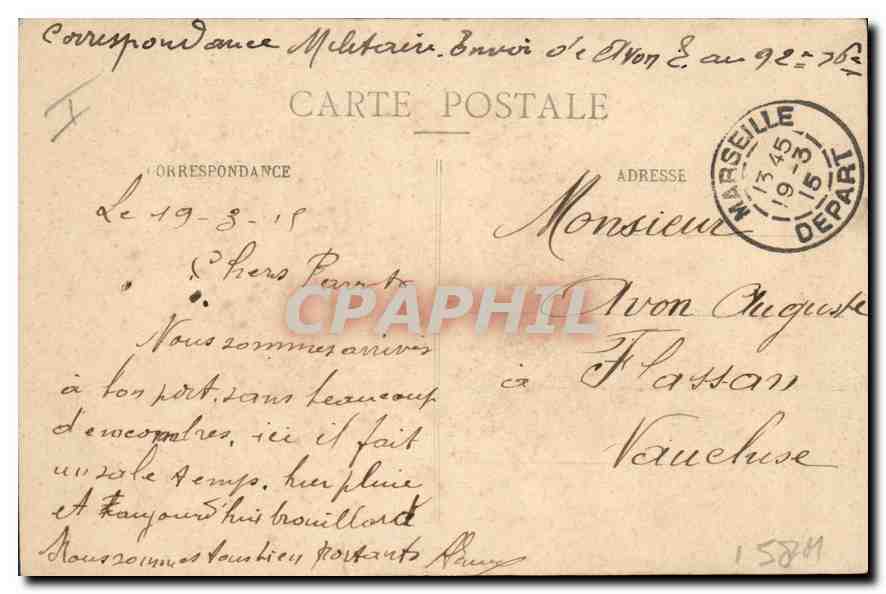 Correspondance Militaire. Envoi de Avon E. au 92
CARTE POSTALE
CORRESPONDANCE
ADRESSE
MARSEILLE
13 45
19 - 3
15
DEPART
Le 19-3-15
Chers Parents
Nous sommes arrivés
à bon port, sans beaucoup
d'encombres, ici il fait
un sale temps, hier pluie
et aujourd'hui brouillard
Nous sommes tous bien portants
Monsieur
Avon Auguste
à Flassan
Vaucluse
CPAPHIL
I